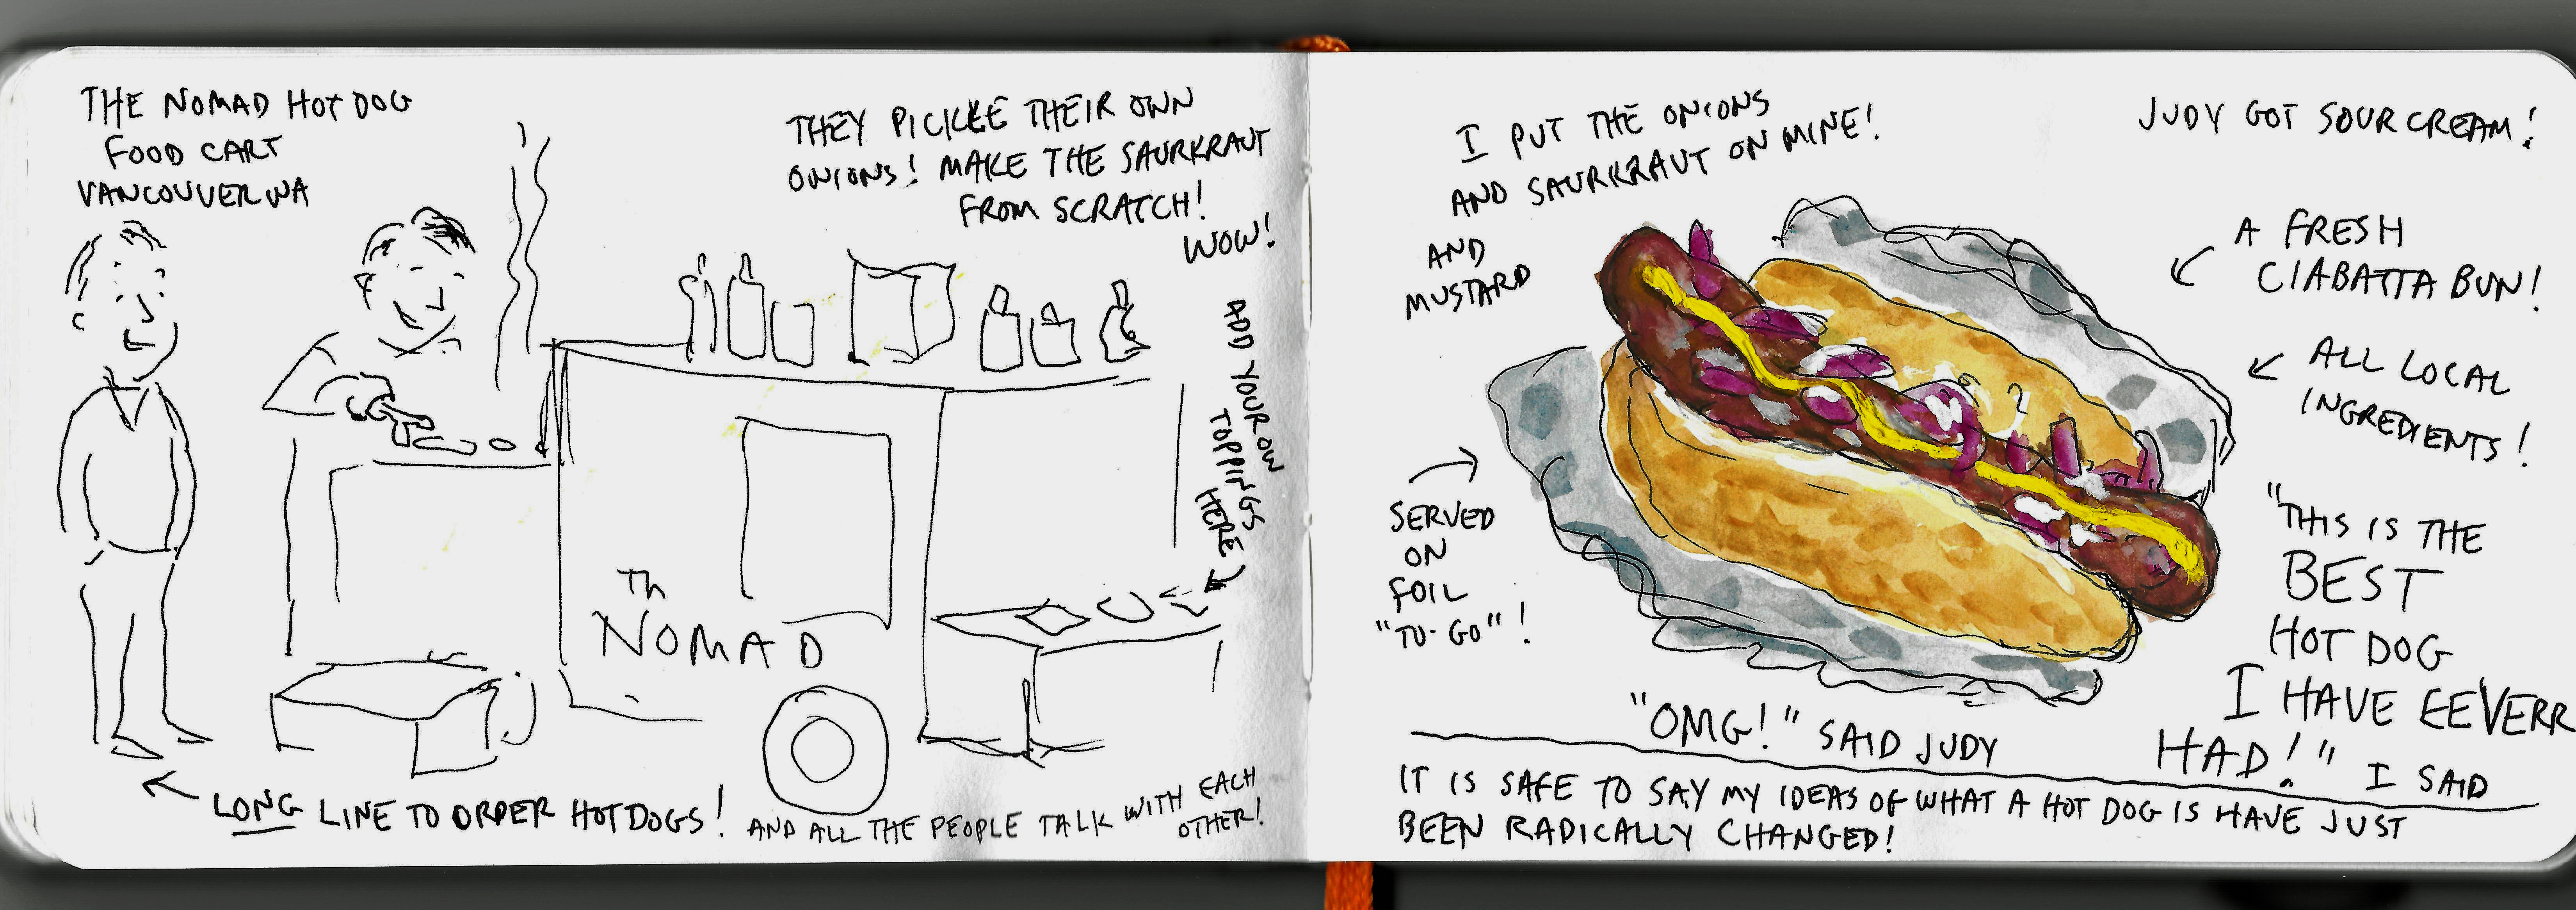 THE NOMAD HOT DOG
FOOD CART
VANCOUVER WA
THEY PICKLE THEIR OWN
ONIONS! MAKE THE SAURKRAUT
FROM SCRATCH!
WOW!
ADD YOUR OWN
TOPPINGS
HERE
Th
NOMAD
LONG LINE TO ORDER HOT DOGS!
AND ALL THE PEOPLE TALK WITH EACH
OTHER!
I PUT THE ONIONS
AND SAURKRAUT ON MINE!
AND
MUSTARD
JUDY GOT SOUR CREAM!
A FRESH
CIABATTA BUN!
ALL LOCAL
INGREDIENTS!
SERVED
ON
FOIL
"TO-GO"!
"THIS IS THE
BEST
HOT DOG
I HAVE EEVERR
HAD!" I SAID
"OMG!" SAID JUDY
IT IS SAFE TO SAY MY IDEAS OF WHAT A HOT DOG IS HAVE JUST
BEEN RADICALLY CHANGED!